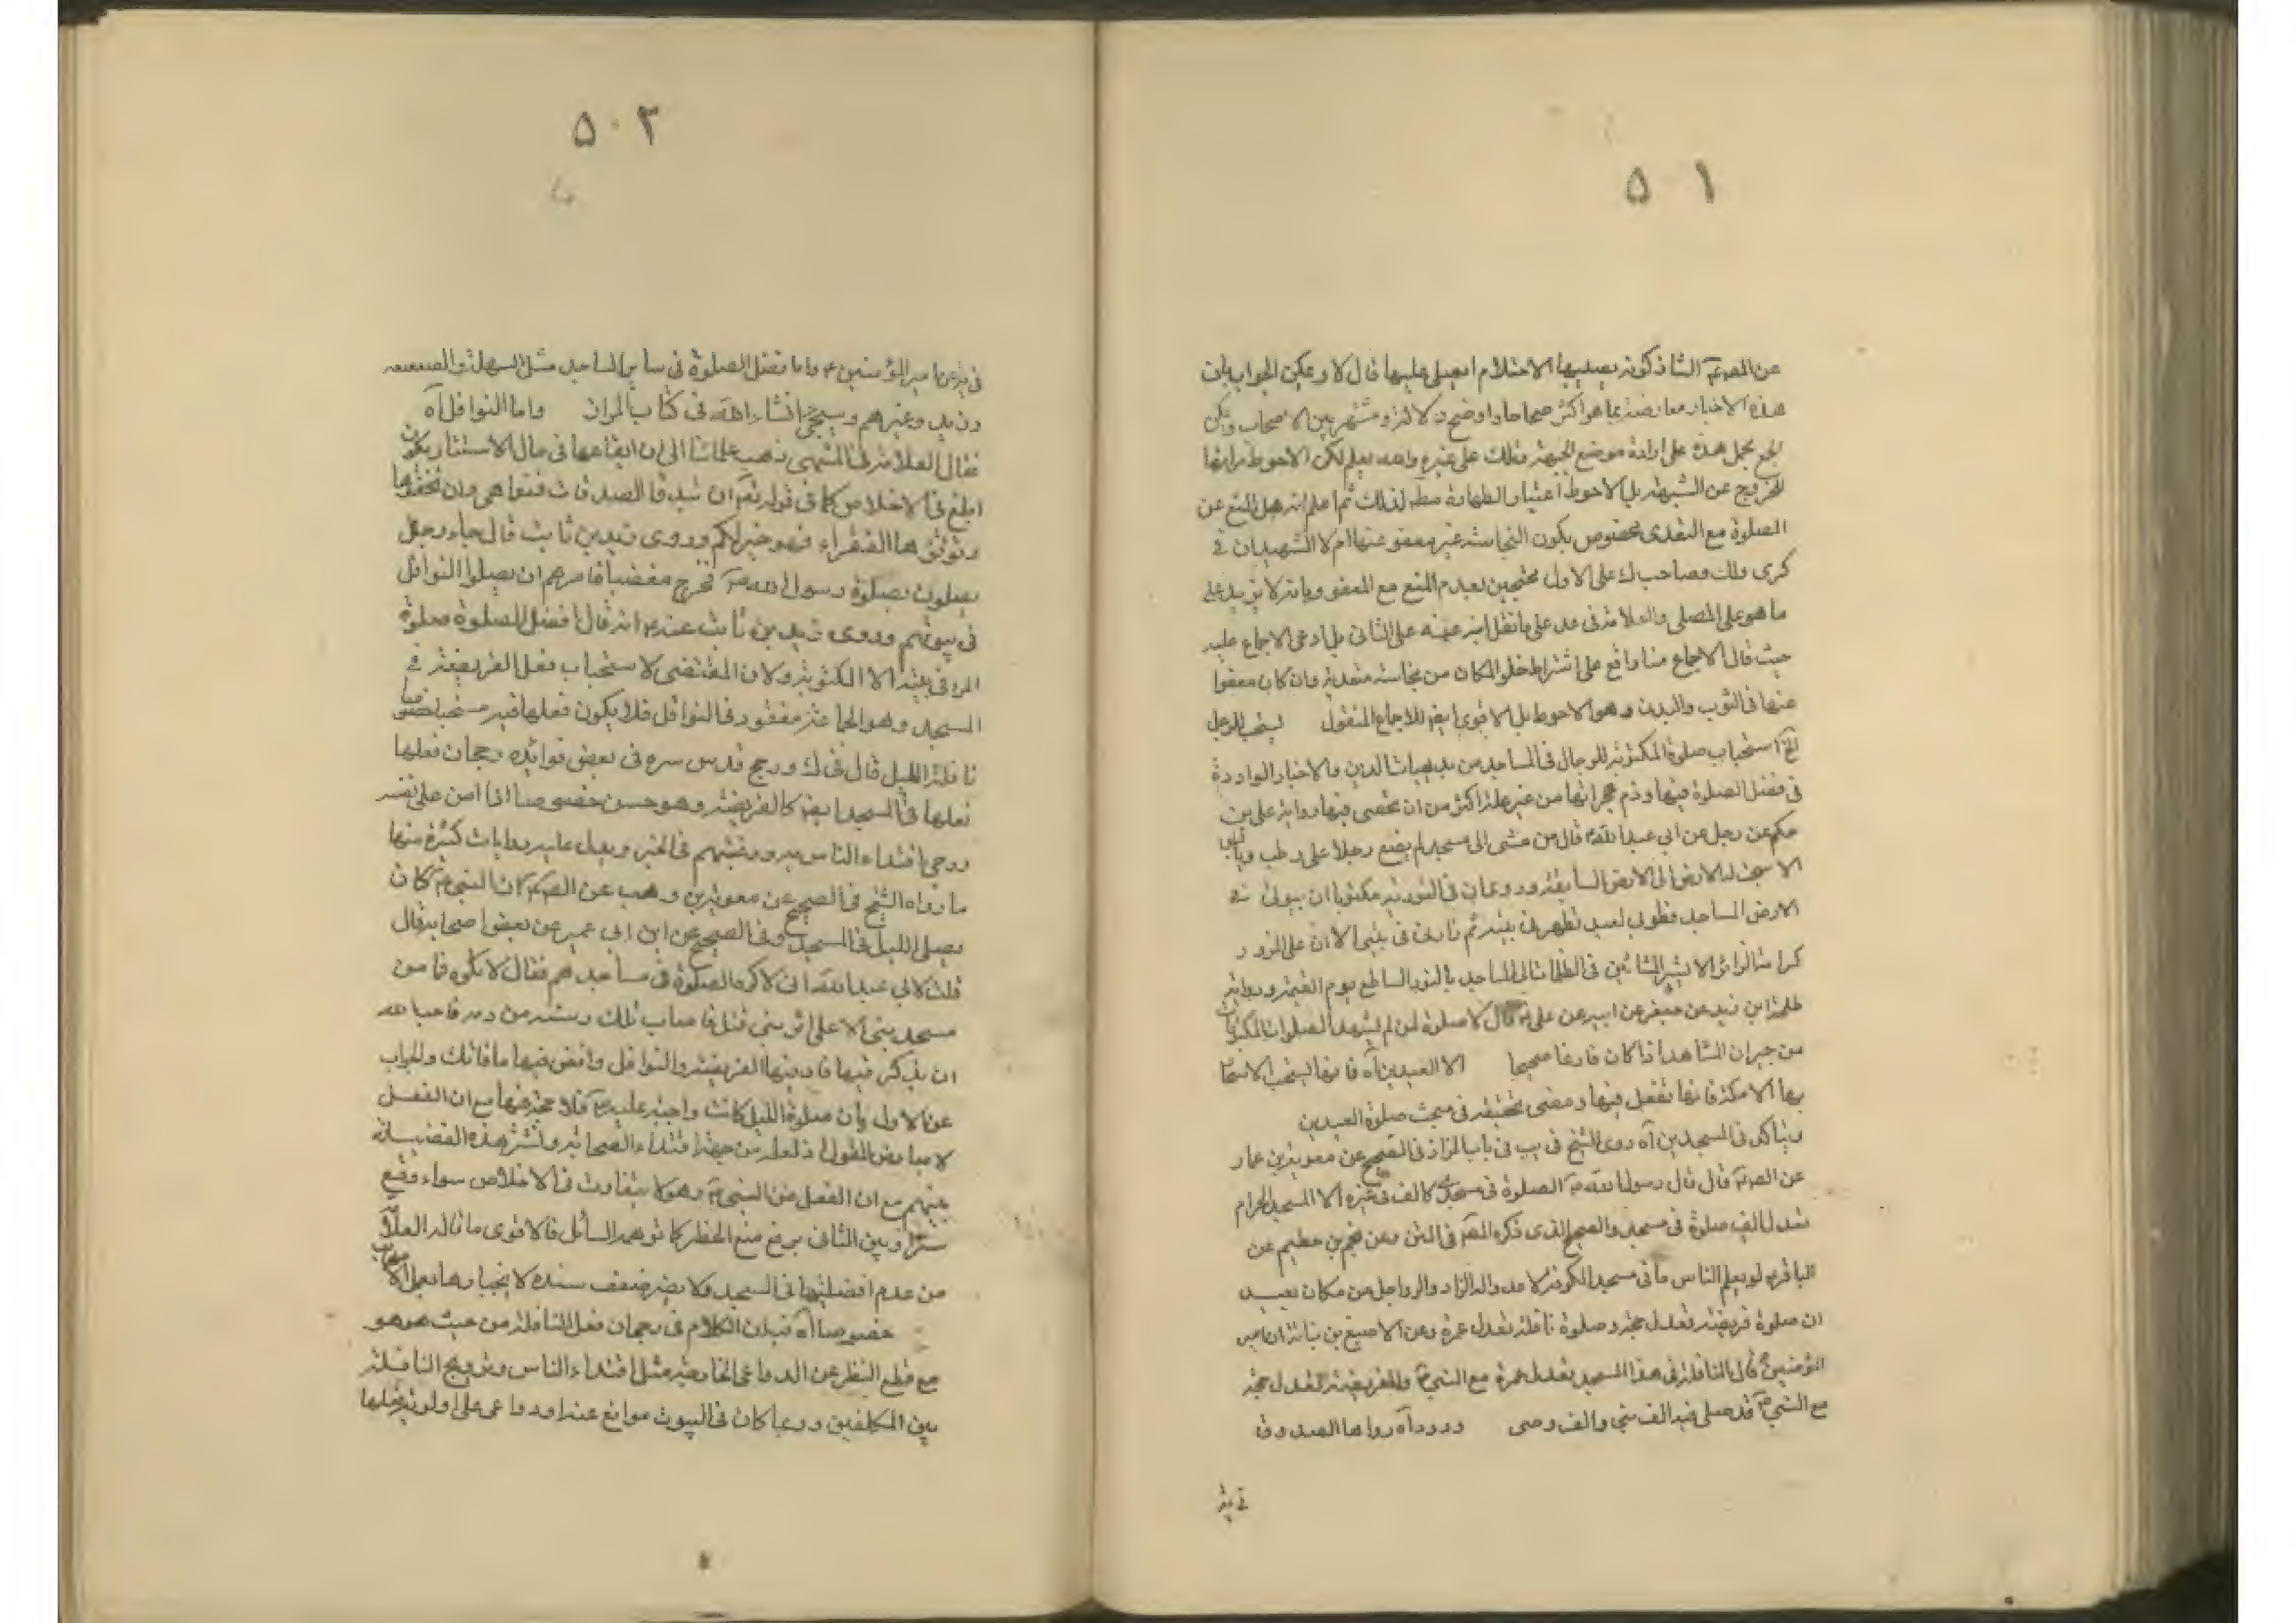 ٥٠١
عن الصم الشاذكونه يصيبها الاحتلام ايصلى عليها قال لا ويمكن الجواب بان
هذه الاخبار معارضة بما هو اكثر صحاحا واوضح دلالة ومشتهر بين الاصحاب ويمكن
الجمع بحمل هذه على ارادة موضع الجبهة وتلك على غيره والله يعلم لكن الاحوط
للخروج عن الشبهة بل الاحوط اعتبار الطهارة مط لذلك ثم اعلم انه هل المنع عن
الصلوة مع التعدى مخصوص بكون النجاسة غير معفو عنها ام لا الشهيدان في
كرى ولك وصاحب ك على الاول محتجين بعدم المنع مع المعفو وبانه لا يزيد على
ما هو على المصلى والعلامة في عد على ما نقل ابنه عنه على الثانى بل ادعى الاجماع عليه
حيث قال الاجماع منا واقع على اشتراط خلو المكان من نجاسة متعدية وان كان معفوا
عنها فى الثوب والبدن وهو الاحوط بل الاقوى ايض للاجماع المنقول يستحب للرجل
الخ استحباب صلوة المكتوبة للرجال فى المساجد من بديهيات الدين والاخبار الواردة
فى فضل الصلوة فيها وذم هجرانها من غير علة اكثر من ان تحصى فيها رواية على بن
حكم عن رجل عن ابي عبد الله قال من مشى الى مسجد لم يضع رجلا على رطب ويابس
الا سبحت له الارض الى الارض السابعة وروى ان فى التورية مكتوبا ان بيوتى في
الارض المساجد فطوبى لعبد تطهر فى بيته ثم زارنى فى بيتى الا ان على المزور
كرامة الزائر الا بشر المشائين فى الظلمات الى المساجد بالنور الساطع يوم القيمة ورواية
طلحة ابن زيد عن جعفر عن ابيه عن على قال لا صلوة لمن لم يشهد الصلوات المكتوبات
من جيران المشاهد اذا كان فارغا صحيحا الا العيدين آه فانها ليستحب الاستحا
بها الامكنة فانها تفعل فيها ومضى تحقيقه فى مبحث صلوة العيدين
ويتاكد فى المسجدين آه روى الشيخ فى يب فى باب المزار فى الصحيح عن معوية بن عمار
عن الصم قال قال رسول الله ص الصلوة فى مسجدى كالف فى غيره الا المسجد الحرام
تعدل الف صلوة فى مسجدى والصحيح الذى ذكره المصم فى المتن وعن نجم بن حطيم عن
الباقر لو يعلم الناس ما فى مسجد الكوفة لاعدوا له الزاد والرواحل من مكان بعيد
ان صلوة فريضة تعدل حجة وصلوة نافلة تعدل عمرة وعن الاصبغ بن نباتة ان امير
المؤمنين قال النافلة فى هذا المسجد يعدل عمرة مع النبى والفريضة تعدل حجة
مع النبى قد صلى فيه الف نبى والف وصى وورد آه رواها الصدوق
فى يه
٥٠٢
فى يه عن امير المؤمنين واما فضل الصلوة فى ساير المساجد مثل السهلة والصعصعه
وزيد وغيرهم وسيجئ انشاء الله فى كتاب المزار واما النوافل آه
فقال العلامة فى المنتهى ذهب علمائنا الى ان ايقاعها فى حال الاستتار يكون
ابلغ فى الاخلاص كما فى قوله تعم ان تبدوا الصدقات فنعما هى وان تخفوها
وتؤتوها الفقراء فهو خير لكم وروى زيد بن ثابت قال جاء رجل
يصلون بصلوة رسول الله ص فخرج مغضبا فامرهم ان يصلوا النوافل
فى بيوتهم وروى زيد بن ثابت عنه انه قال افضل الصلوة صلوة
المرء فى بيته الا المكتوبة ولان المقتضى لاستحباب فعل الفريضة في
المسجد وهو الجماعة مفقود فى النوافل فلا يكون فعلها فيه مستحبا خصوصا
نافلة الليل قال فى ك ورجح قدس سره فى بعض فوائده رجحان فعلها
فعلها فى المسجد ايض كالفريضة وهو حسن خصوصا اذا امن على نفسه
ورجى اقتداء الناس به ورغبتهم فى الخير ويدل عليه روايات كثيرة منها
ما رواه الشيخ فى الصحيح عن معوية بن وهب عن الصم ان النبى ص كان
يصلى الليل فى المسجد وفى الصحيح عن ابن ابى عمير عن بعض اصحابه قال
قلت لابى عبد الله انى لاكره الصلوة فى مساجدهم فقال لا تكره فما من
مسجد بنى الا على قبر نبى قتل فاصاب تلك رشة من دمه فاحب الله
ان يذكر فيها فاد فيها الفريضة والنوافل واقض فيها ما فاتك والجواب
عن الاول بان صلوة الليل كانت واجبة عليه فلا حجة فيها مع ان الفعل
لا يعارض القول اذ لعله من جهة اقتداء الصحابة ونشر هذه الفضيلة
بينهم مع ان الفعل من النبى ص وهو لا يتفاوت فى الاخلاص سواء وقع
سرا وبين الثانى برفع منع الحظر كما توهمه السائل فالاقوى ما قاله العلامة
من عدم افضليتها فى المسجد ولا يضر ضعف سنده لانجبارها بعمل الاصحاب
خصوصا آه فبان الكلام فى رجحان فعل النافلة من حيث هو هو
مع قطع النظر عن الدواعى الخارجية مثل اقتداء الناس وترويج النافلة
بين المكلفين وربما كان فى البيوت موانع عنه او دواعى على اولوية فعلها